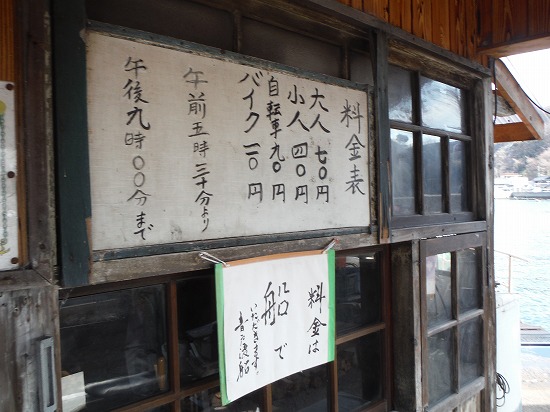 料金表
大人 七〇円
小人 四〇円
自転車 九〇円
バイク 一一〇円
午前五時三十分より
午後九時〇〇分まで
料金は
船で
いただきます。
音戸渡船